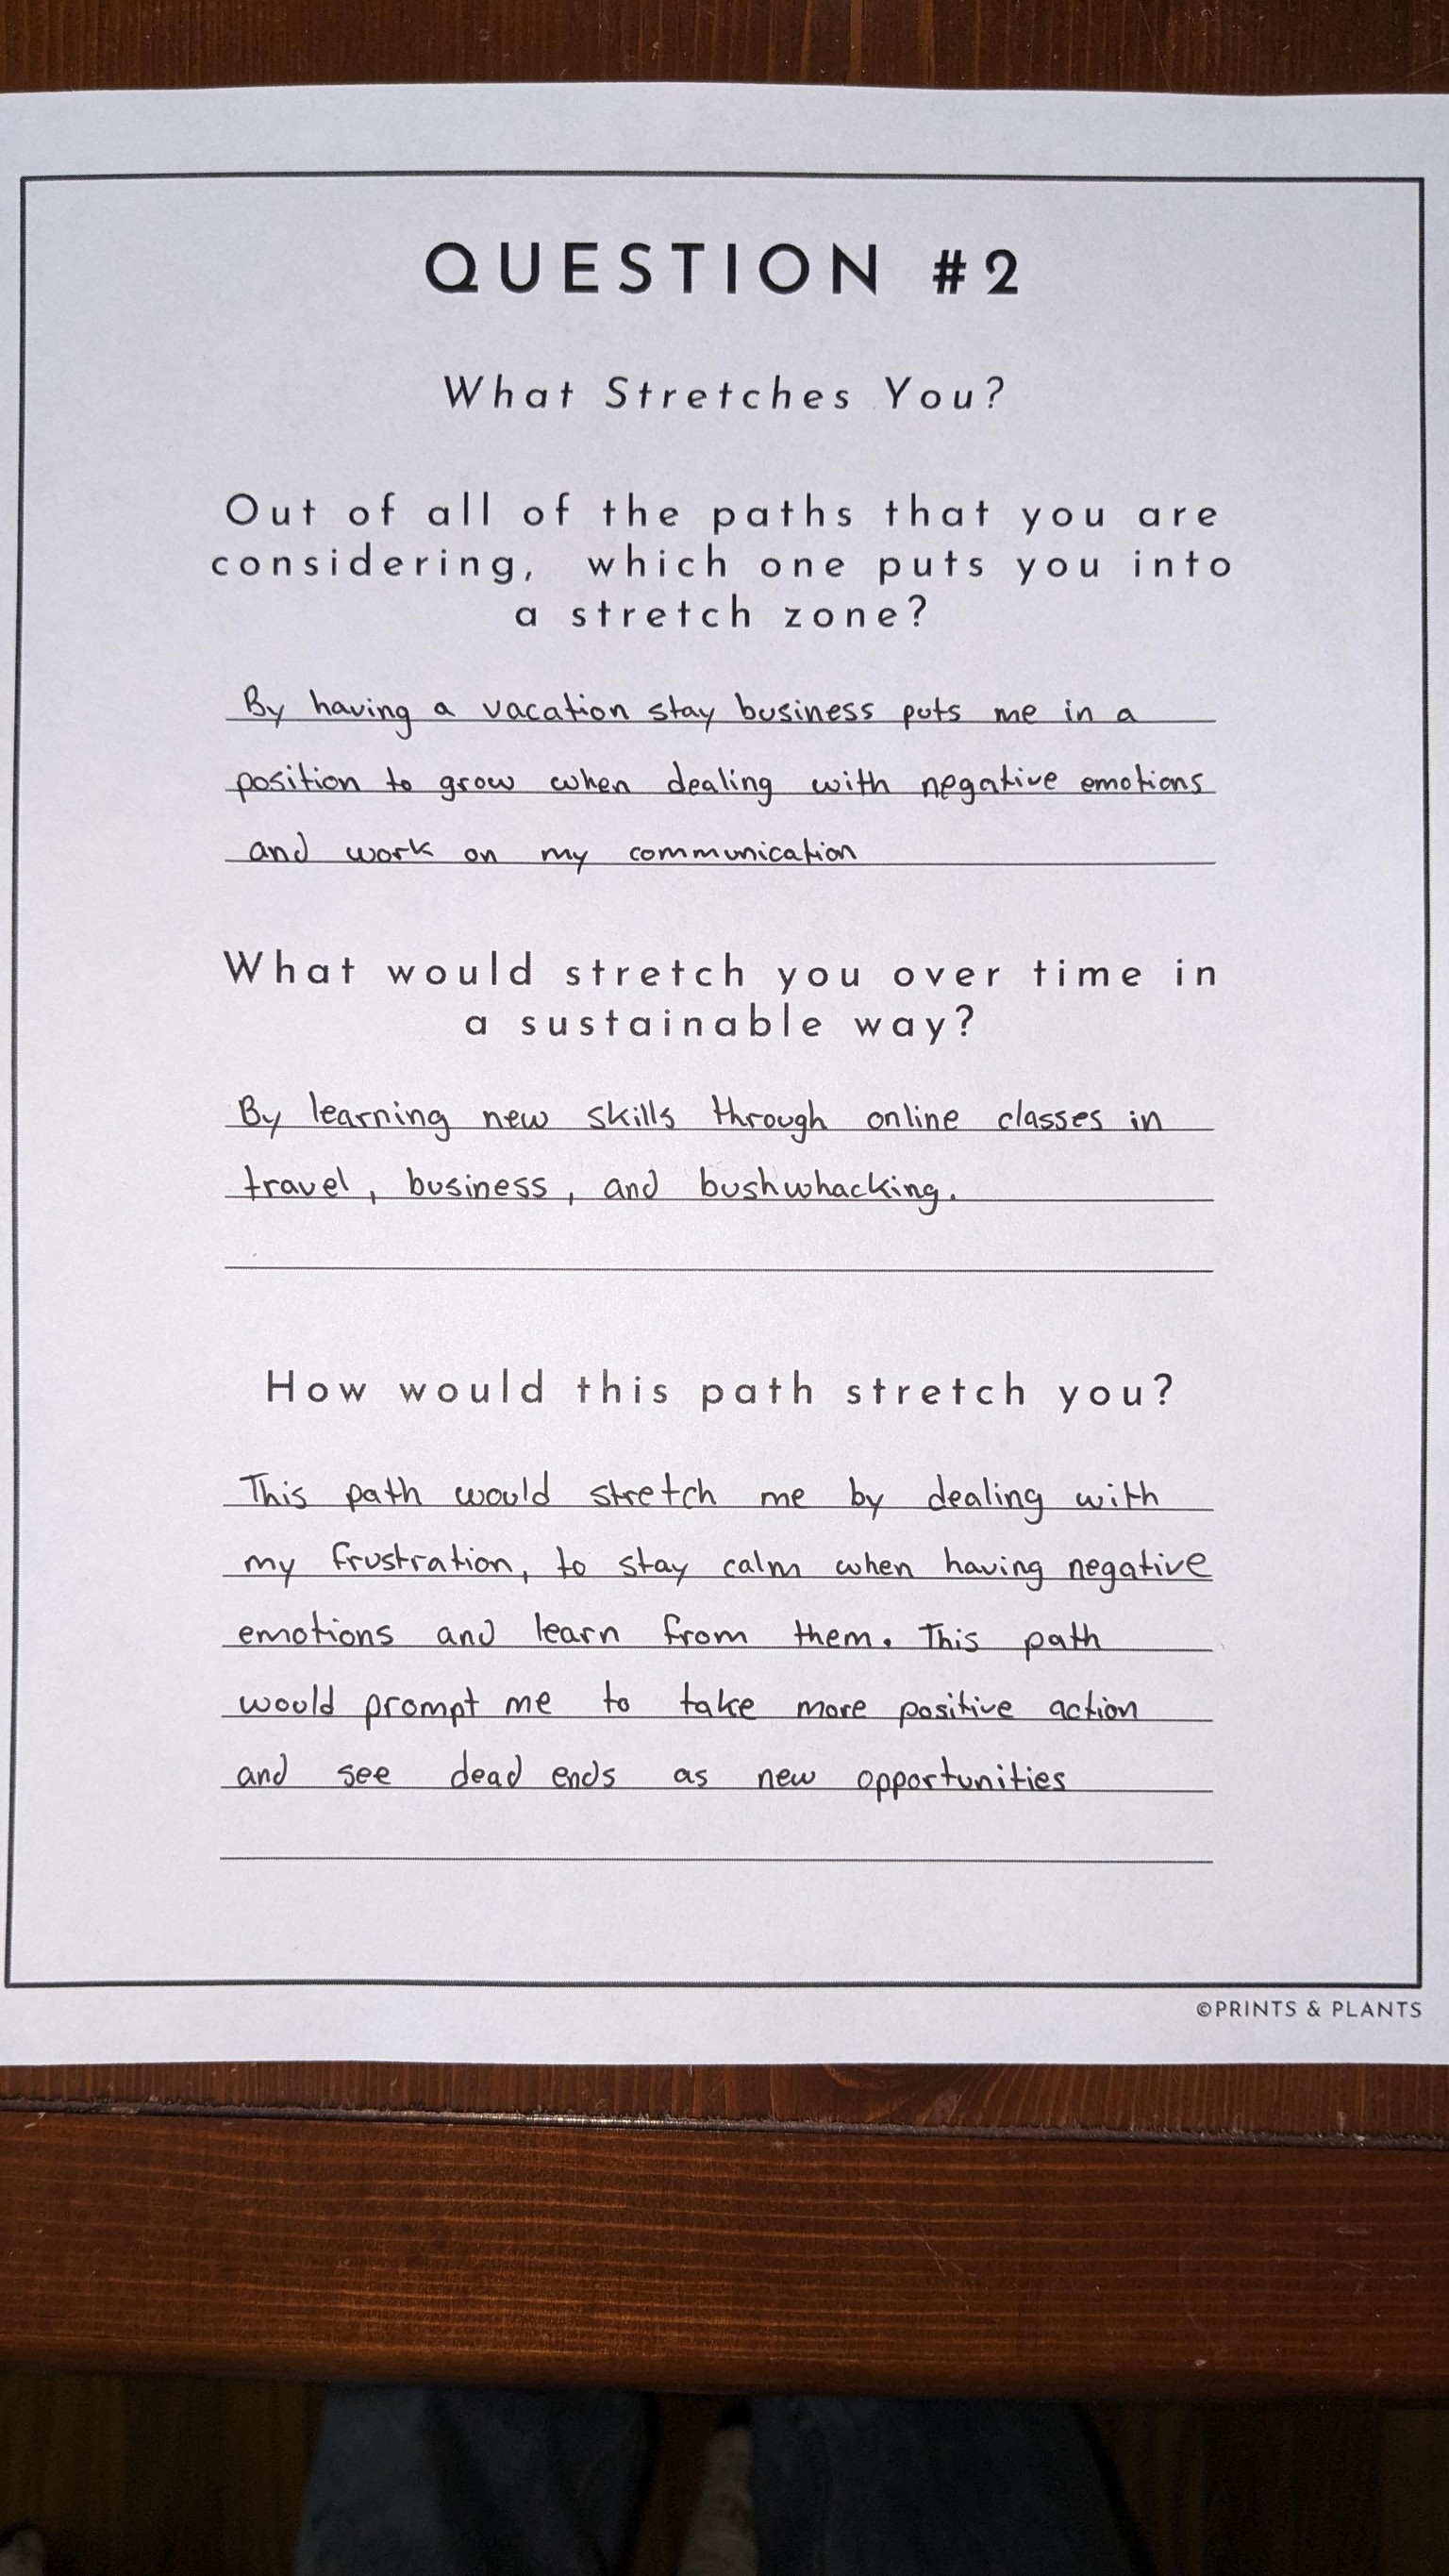 QUESTION #2
What Stretches You?
Out of all of the paths that you are
considering, which one puts you into
a stretch zone?
By having a vacation stay business puts me in a
position to grow when dealing with negative emotions
and work on my communication
What would stretch you over time in
a sustainable way?
By learning new skills through online classes in
travel, business, and bushwhacking.
How would this path stretch you?
This path would stretch me by dealing with
my frustration, to stay calm when having negative
emotions and learn from them. This path
would prompt me to take more positive action
and see dead ends as new opportunities
©PRINTS & PLANTS